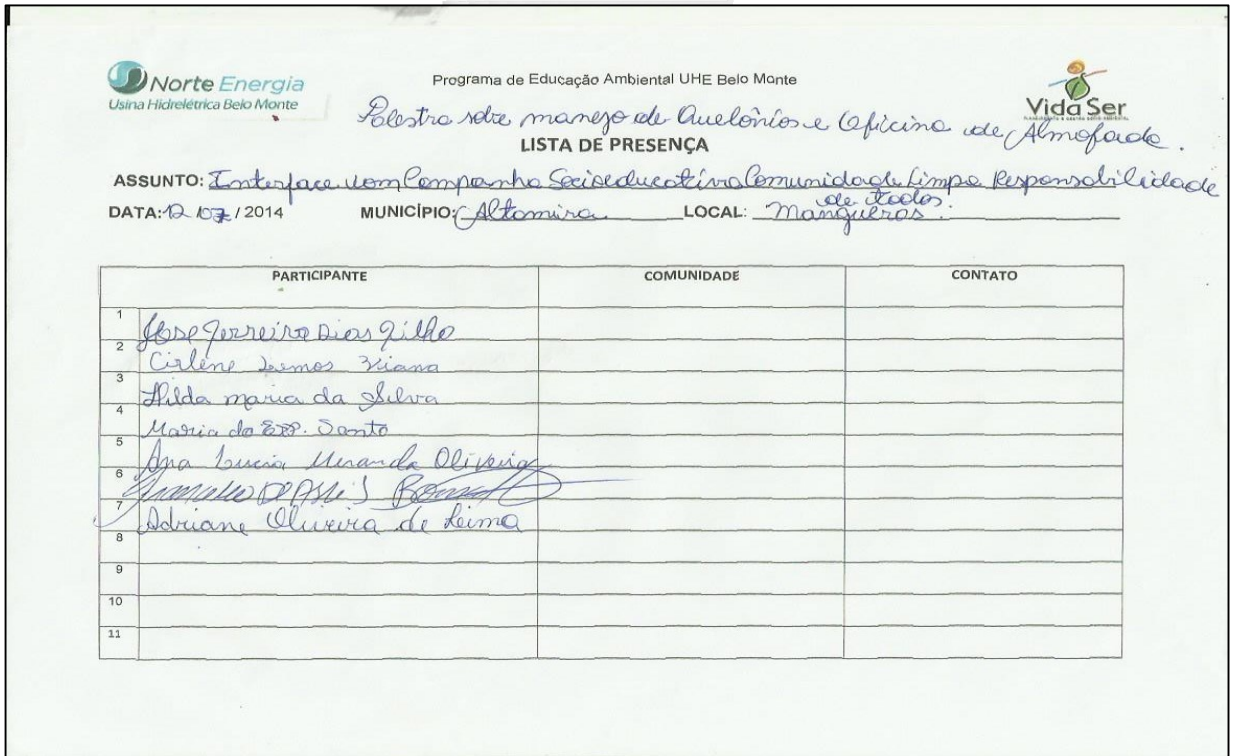 Norte Energia
Usina Hidrelétrica Belo Monte
Programa de Educação Ambiental UHE Belo Monte
Vida Ser
Palestra sobre manejo de Quelônios e Oficina de Almofada.
LISTA DE PRESENÇA
ASSUNTO: Interface com Campanha Socioeducativa Comunidade Limpa Responsabilidade
de todos.
DATA: 12/07/2014 MUNICÍPIO: Altamira LOCAL: Mangueiras.
PARTICIPANTE COMUNIDADE CONTATO
1 José Ferreira Dias Filho
2 Cirlene Lemos Viana
3 Hilda maria da Silva
4 Maria do Esp. Santo
5 Ana Lucia Miranda Oliveira
6 DE ASSIS
7 Adriane Oliveira de Leima
8
9
10
11